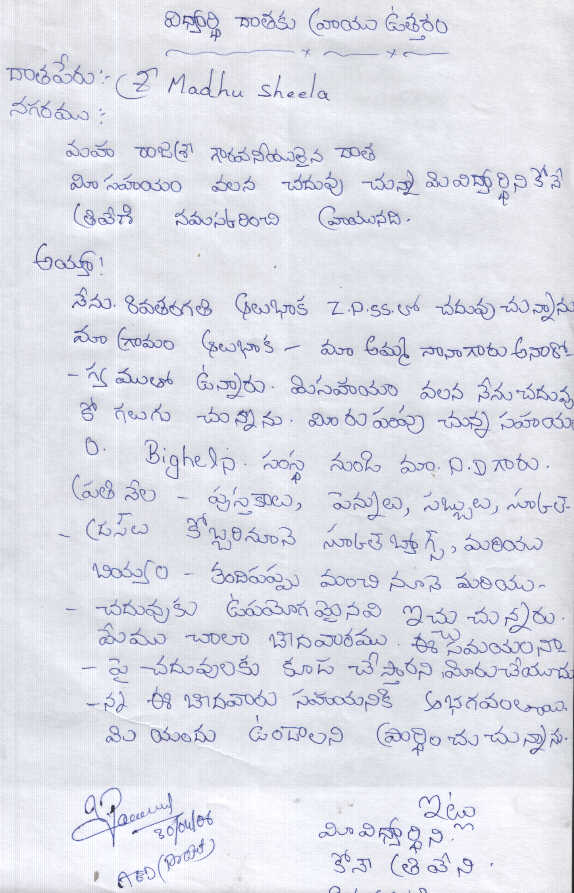 విద్యార్థి దాతకు వ్రాయు ఉత్తరం
దాతపేరు:- శ్రీ Madhu Sheela
నగరము :
మహా రాజశ్రీ గౌరవనీయులైన దాత
మీ సహాయం వలన చదువు చున్న మీ విద్యార్థిని కోనే
త్రివేణి నమస్కరించి వ్రాయునది.
అయ్యా!
నేను. 8వతరగతి Z.P.SS.లో చదువు చున్నాను
మా గ్రామం - మా అమ్మ నాన్నగారు అనారో
- గ్య ముతో ఉన్నారు. మీసహాయం వలన నేను చదువు
కో గలుగు చున్నాను. మీరు పంపు చున్న సహాయం
O. Bighelp. సంస్థ నుండి మా. P.D గారు.
ప్రతి నెల - పుస్తకాలు, పెన్నులు, సబ్బులు, స్కూల్-
- డ్రస్‌లు కొబ్బరినూనె స్కూల్ బ్యాగ్స్, మరియు
బియ్యం - కందిపప్పు మంచి నూనె మరియు-
- చదువుకు ఉపయోగమైనవి ఇచ్చు చున్నారు.
మేము చాలా బీదవారము. ఈ సమయం నా
- పై చదువులకు కూడ చేస్తారని మీరుచేయుచు
-న్న ఈ బీదవారు సహాయనికి ఆభగవంతుడు.
మీ యందు ఉండాలని ప్రార్థించు చున్నాను.
ఇట్లు
30/04/06
మీ విద్యార్థిని.
కోనా త్రివేని.